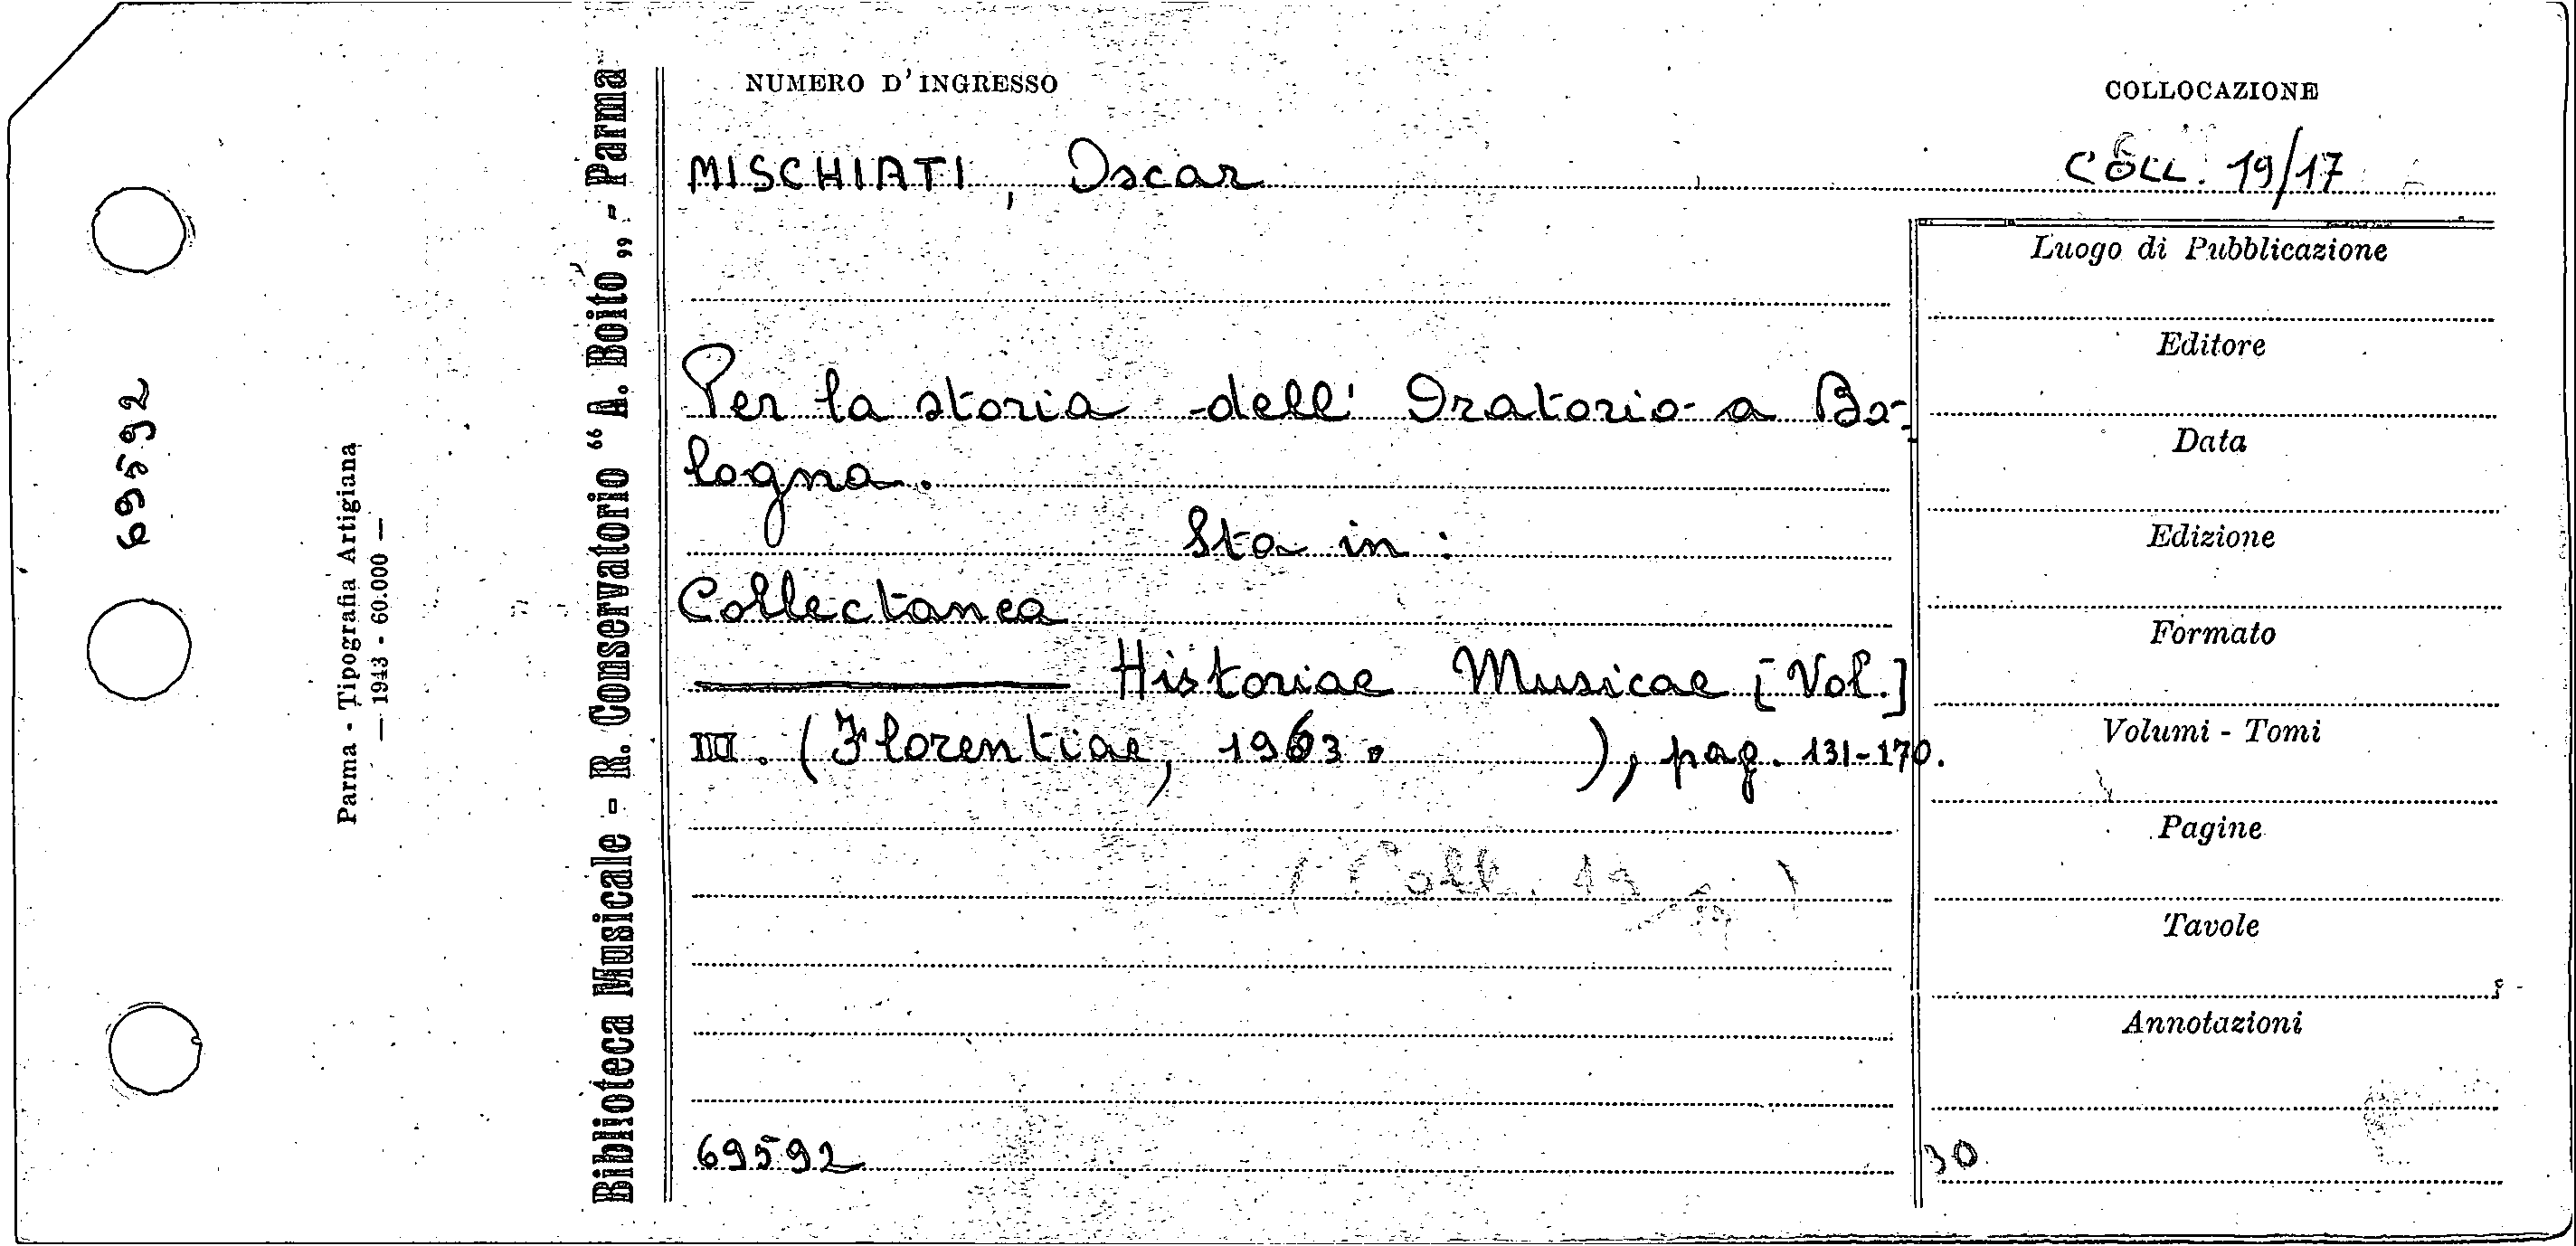 69592
Parma - Tipografia Artigiana
— 1943 - 60.000 —
Biblioteca Musicale - R. Conservatorio “ A. Boito „ - Parma
NUMERO D'INGRESSO
COLLOCAZIONE
MISCHIATI, Oscar
COLL. 19/17
Per la storia dell' Oratorio a Bo-
logna.
Sta in :
Collectanea
——— Historiae Musicae [Vol.]
III. (Florentiae, 1963. ), pag. 131-170.
(Coll. 19
69592
Luogo di Pubblicazione
Editore
Data
Edizione
Formato
Volumi - Tomi
Pagine
Tavole
Annotazioni
30